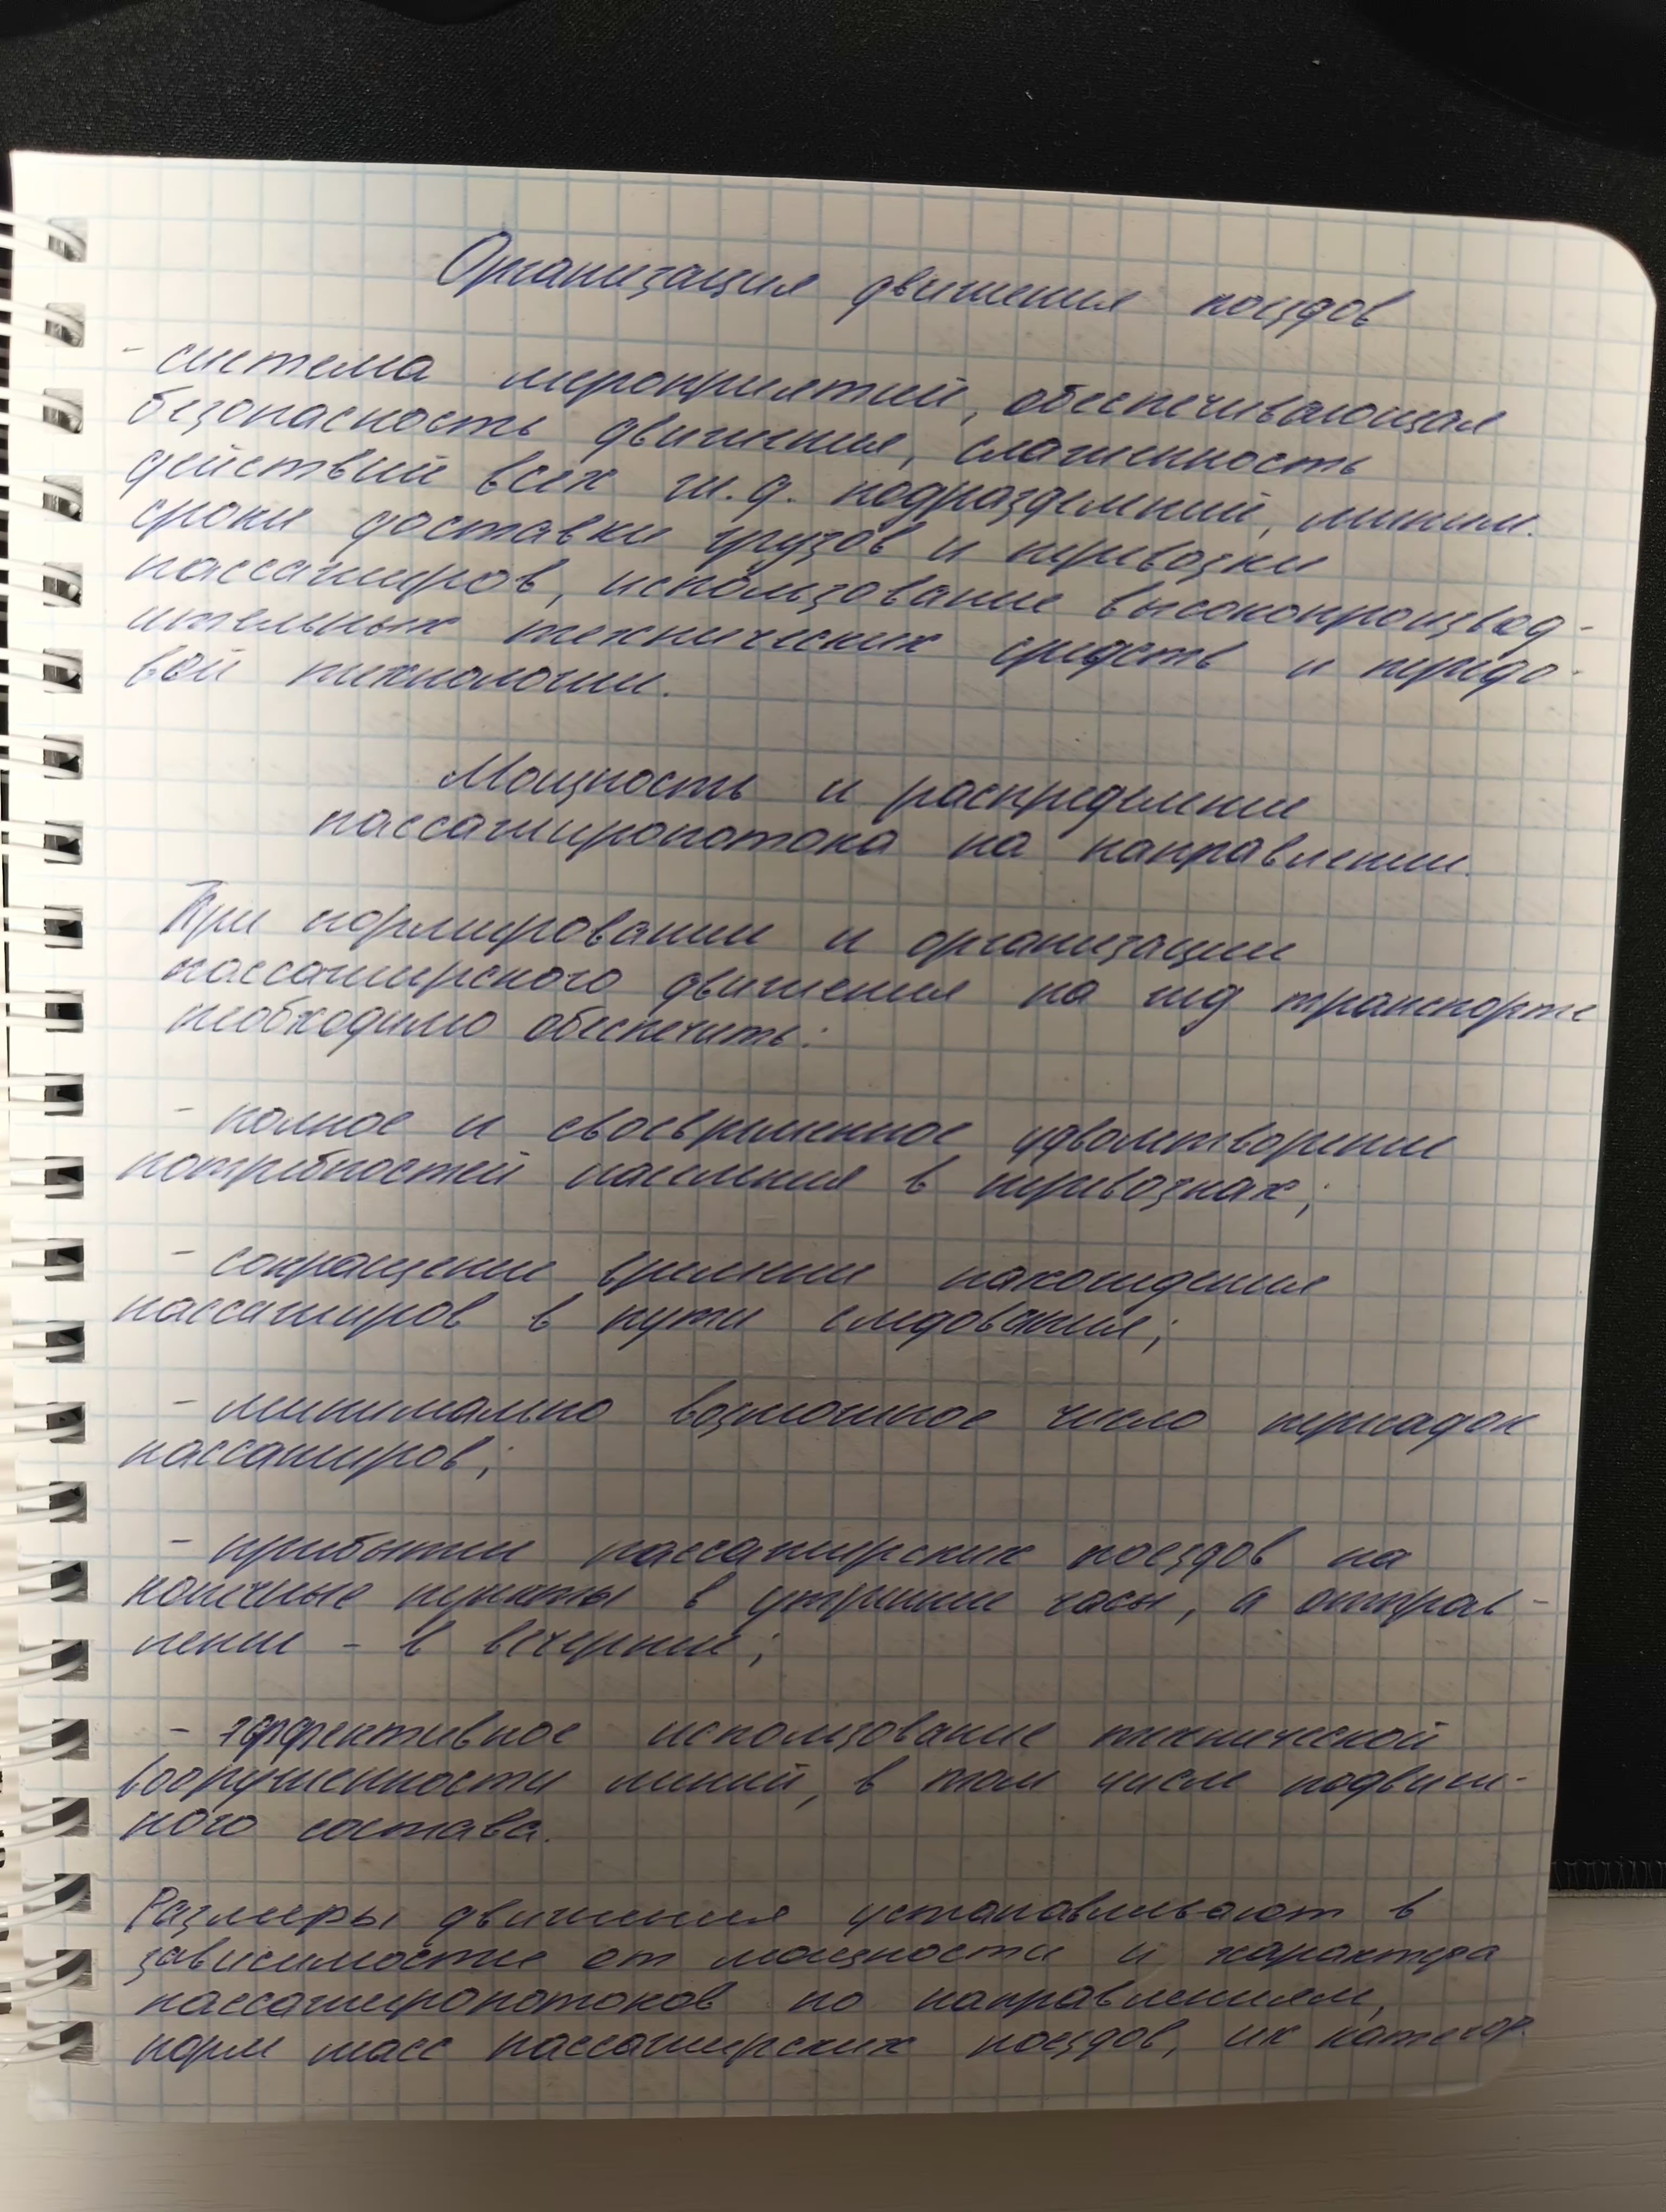 Организация движения поездов
- система мероприятий, обеспечивающая
безопасность движения, слаженность
действий всех ж.д. подразделений, миним.
сроки доставки грузов и перевозки
пассажиров, использование высокопроизвод-
ительных технических средств и передо-
вой технологии.
Мощность и распределение
пассажиропотока на направлении.
При нормировании и организации
пассажирского движения на жд транспорте
необходимо обеспечить:
- полное и своевременное удовлетворение
потребностей населения в перевозках;
- сокращение времени нахождения
пассажиров в пути следования;
- минимально возможное число пересадок
пассажиров;
- прибытие пассажирских поездов на
конечные пункты в утренние часы, а отправ-
ление - в вечерние;
- эффективное использование технической
вооруженности линий, в том числе подвиж-
ного состава.
Размеры движения устанавливают в
зависимости от мощности и характера
пассажиропотоков по направлениям,
норм масс пассажирских поездов, их категор.